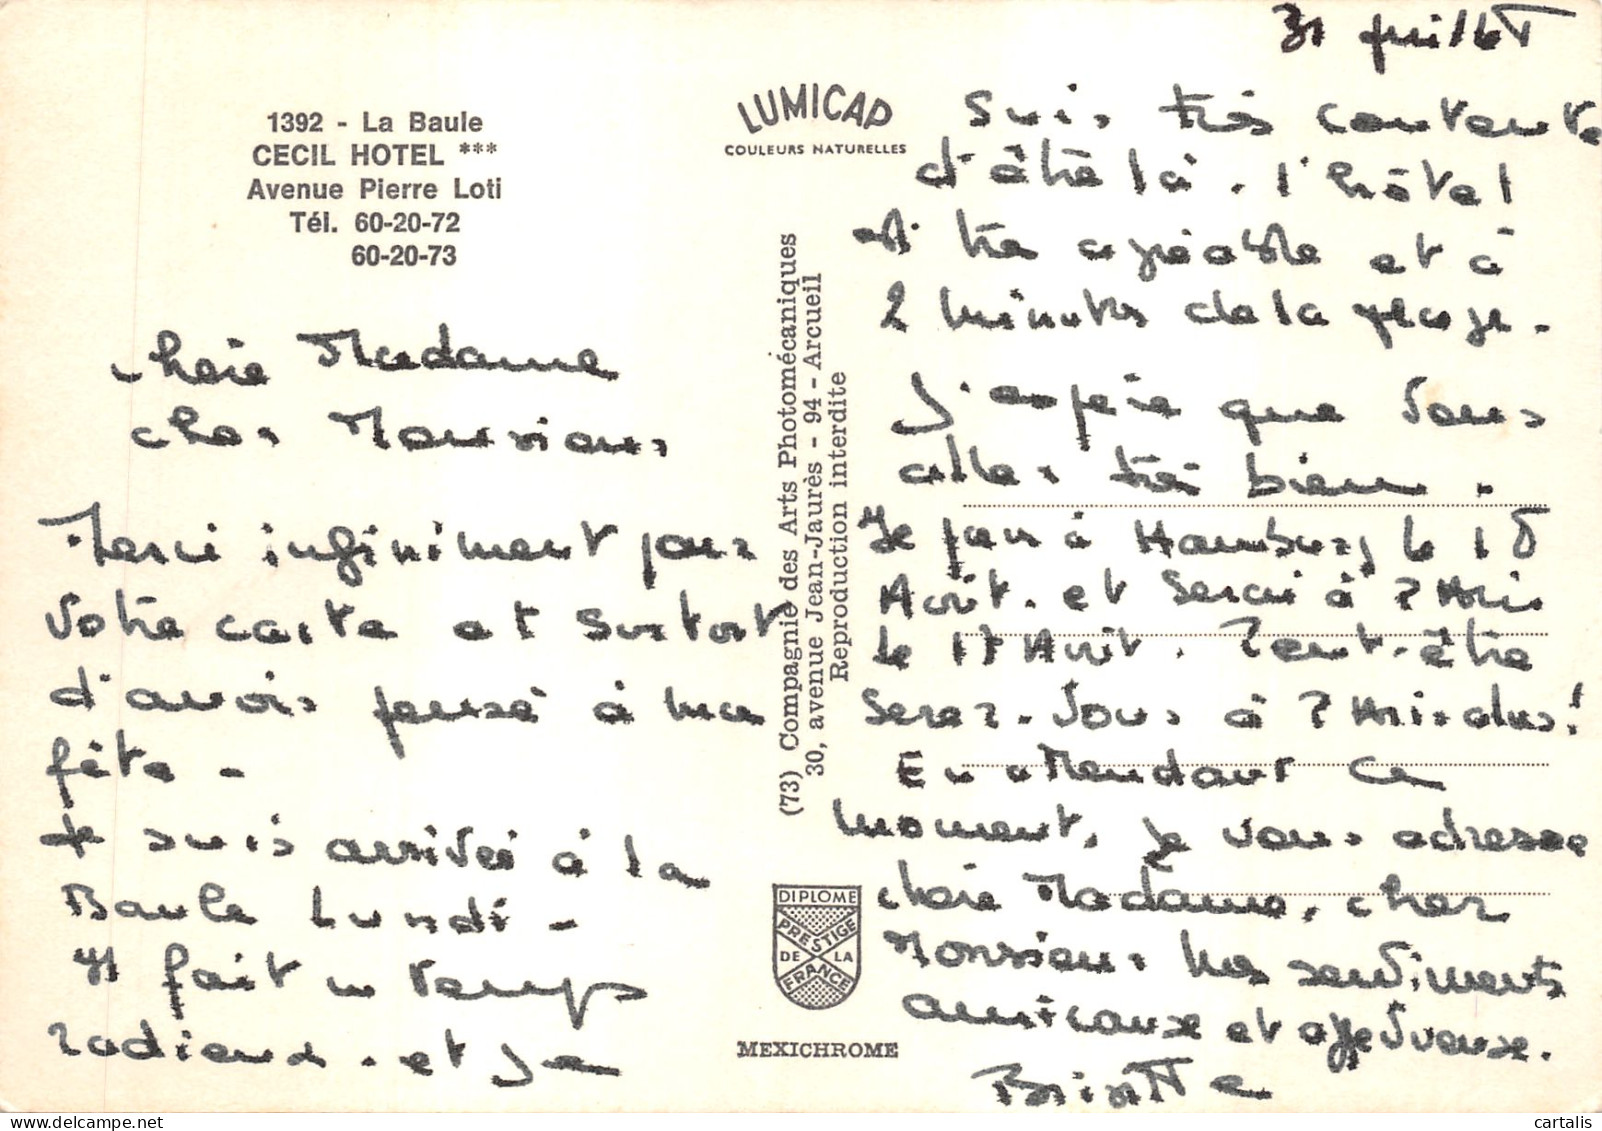 1392 - La Baule
CECIL HOTEL ***
Avenue Pierre Loti
Tél. 60-20-72
60-20-73
LUMICAP
COULEURS NATURELLES
(73) Compagnie des Arts Photomécaniques
30, avenue Jean-Jaurès - 94 - Arcueil
Reproduction interdite
DIPLOME
PRESTIGE
DE LA
FRANCE
MEXICHROME
31 juillet
chère Madame
cher Monsieur
Merci infiniment pour
votre carte et surtout
d'avoir pensé à ma
fête -
Je suis arrivée à la
Baule Lundi -
Il fait un temps
radieux. et je
suis très contente
d'être là. l'hôtel
est très agréable et à
2 minutes de la plage.
J'espère que vous
allez très bien.
Je pars à Hambourg le 15
Août. et serai à
le 17 Août. Peut-être
serez-vous à
En attendant ce
moment, je vous adresse
chère Madame, cher
Monsieur mes sentiments
amicaux et affectueux.
cartalis